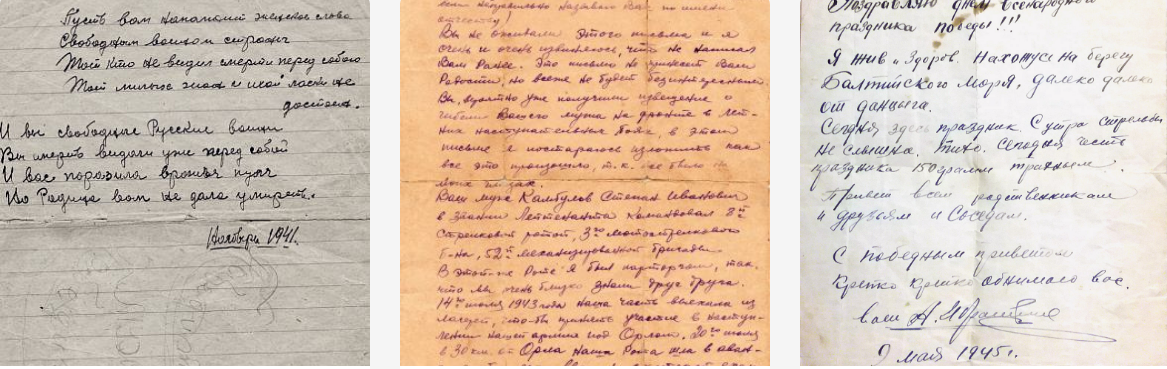 Пусть вам
Свободным воинам
Тот кто не видел смерти перед собою
Тот милые
достоен.
И вы свободные Русские воины
Вы смерть видали уже перед собой
И вас поразила вражья пуля
Но Родина вам не дала умереть.
Ноябрь 1941.
отчеству!
Вы не ожидали этого письма и я
очень и очень извиняюсь, что не написал
Вам Ранее. Это письмо не принесет Вам
Радости, но всё же не будет безинтересным
Вы, вероятно уже получили извещение о
гибели Вашего мужа на фронте в лет-
них наступательных боях, в этом
письме я постараюсь изложить как
всё это произошло, т.к. всё было на
моих глазах.
Ваш муж Степан Иванович
в звании Лейтенанта командовал 8ой
Стрелковой ротой, 3го мотострелкового
б-на, 52й механизированной бригады.
В этой же Роте я был парторгом, так
что мы очень близко знали друг друга.
14го июля 1943 года наша часть выехала из
лагерей, что-бы принять участие в наступ-
лении нашей армии под Орлом. 20го июля
в 30 км. от Орла наша Рота шла в аван-
Поздравляю днём всенародного
праздника победы!!!
Я жив и здоров. Нахожусь на берегу
Балтийского моря, далеко далеко
от данцига.
Сегодня здесь праздник. С утра стрельбы
не слышно. Тихо. Сегодня честь
праздника 150 грамм
Привет всем родственникам
и друзьям и соседам.
С победным приветом
Крепко крепко обнимаю вас.
ваш
9 мая 1945г.